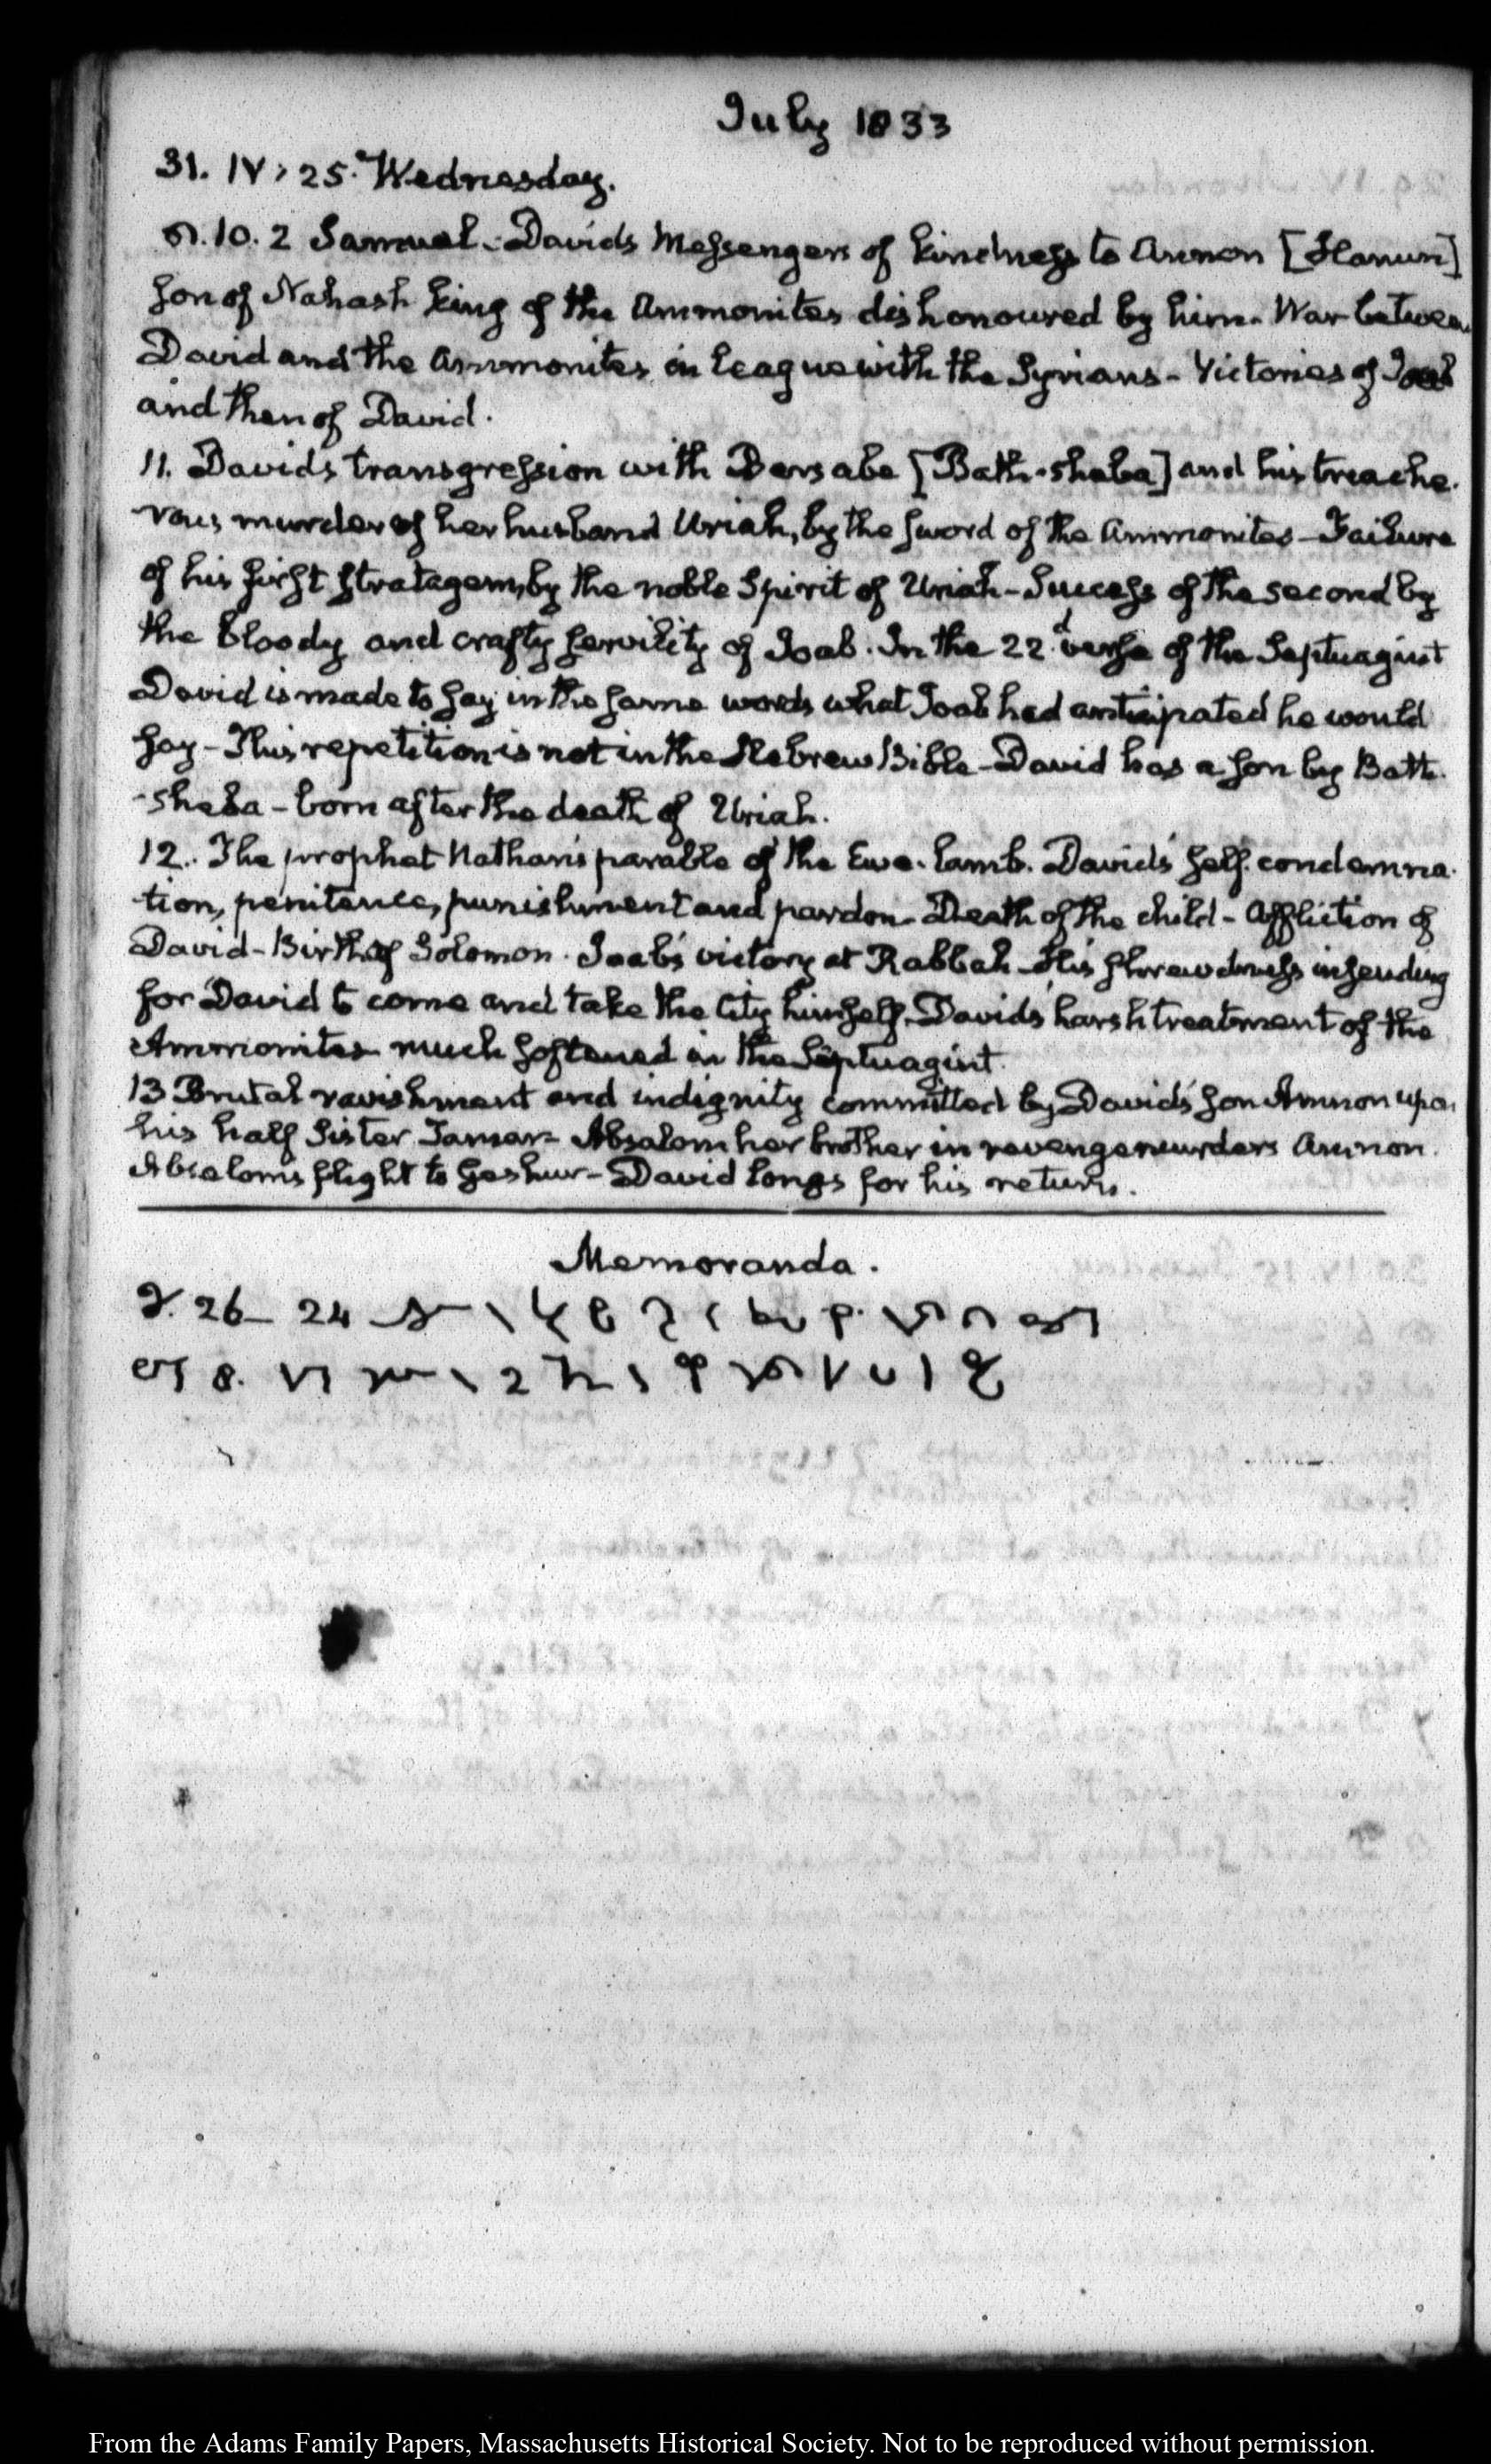 July 1833
31. IV, 25. Wednesday.
10. 2 Samuel - Davids Messengers of kindness to Annon [Hanun]
Son of Nahash king of the Ammonites dishonoured by him - War between
David and the Ammonites in league with the Syrians - Victories of Joab
and then of David.
11. David's transgression with Bersabe [Bath-sheba] and his treache-
rous murder of her husband Uriah, by the sword of the Ammonites - Failure
of his first stratagem, by the noble Spirit of Uriah - Success of the second by
the bloody and crafty servility of Joab. In the 22.d verse of the Septuagint
David is made to say in the same words what Joab had anticipated he would
say - This repetition is not in the Hebrew Bible - David has a son by Bath-
-sheba - born after the death of Uriah.
12. The prophet Nathan's parable of the Ewe-lamb. David's self-condemna-
tion, penitence, punishment and pardon - Death of the child - Affliction of
David - Birth of Solomon. Joab's victory at Rabbah - His shrewdness in sending
for David to come and take the City himself. David's harsh treatment of the
Ammonites much softened in the Septuagint.
13 Brutal ravishment and indignity committed by David's son Amnon upon
his half Sister Tamar - Absalom her brother in revenge murders Amnon.
Absalom's flight to Geshur - David longs for his return.
Memoranda.
26 - 24
8.
From the Adams Family Papers, Massachusetts Historical Society. Not to be reproduced without permission.